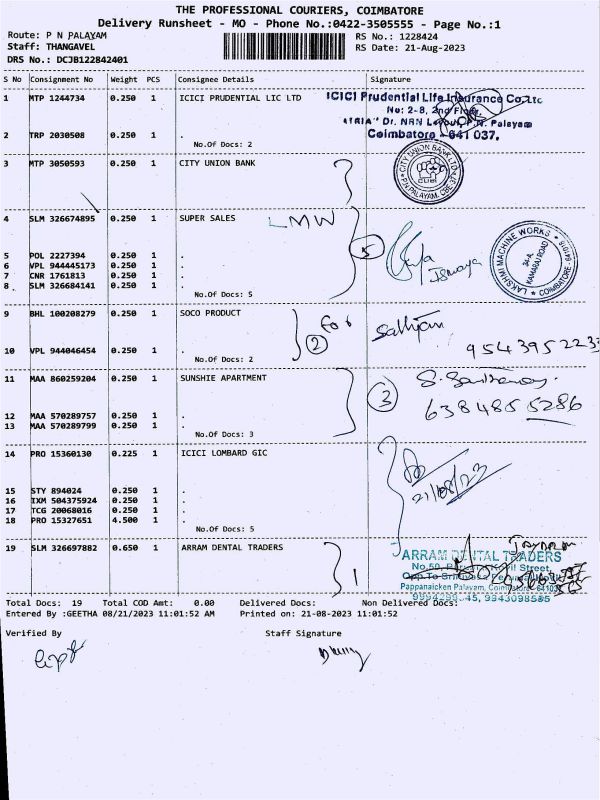 THE PROFESSIONAL COURIERS, COIMBATORE
Delivery Runsheet - MO - Phone No.:0422-3505555 - Page No.:1
Route: P N PALAYAM
Staff: THANGAVEL
DRS No.: DCJB122842401
RS No.: 1228424
RS Date: 21-Aug-2023
S No Consignment No Weight PCS Consignee Details Signature
1 MTP 1244734 0.250 1 ICICI PRUDENTIAL LIC LTD
ICICI Prudential Life Insurance Co.Ltd
No: 2-8, 2nd Floor,
Coimbatore - 641 037.
2 TRP 2030508 0.250 1 .
No.Of Docs: 2
3 MTP 3050593 0.250 1 CITY UNION BANK
CITY UNION BANK LTD
P.N.PALAYAM, CBE-37
4 SLM 326674895 0.250 1 SUPER SALES
LMW
5
LAKSHMI MACHINE WORKS
34-A, KAMARAJ ROAD
COIMBATORE - 641018
5 POL 2227394 0.250 1 .
6 VPL 944445173 0.250 1 .
7 CNR 1761813 0.250 1 .
8 SLM 326684141 0.250 1 .
No.Of Docs: 5
9 BHL 100208279 0.250 1 SOCO PRODUCT
For
2
Sathyan
9543952233
10 VPL 944046454 0.250 1 .
No.Of Docs: 2
11 MAA 860259204 0.250 1 SUNSHIE APARTMENT
3
6384855286
12 MAA 570289757 0.250 1 .
13 MAA 570289799 0.250 1 .
No.Of Docs: 3
14 PRO 15360130 0.225 1 ICICI LOMBARD GIC
21/08/23
15 STY 894024 0.250 1 .
16 IXM 504375924 0.250 1 .
17 TCG 20068016 0.250 1 .
18 PRO 15327651 4.500 1 .
No.Of Docs: 5
19 SLM 326697882 0.650 1 ARRAM DENTAL TRADERS
1
ARRAM DENTAL TRADERS
Pappanaicken Palayam, Coimbatore - 641037
Total Docs: 19 Total COD Amt: 0.00 Delivered Docs: Non Delivered Docs:
Entered By :GEETHA 08/21/2023 11:01:52 AM Printed on: 21-08-2023 11:01:52
Verified By Staff Signature